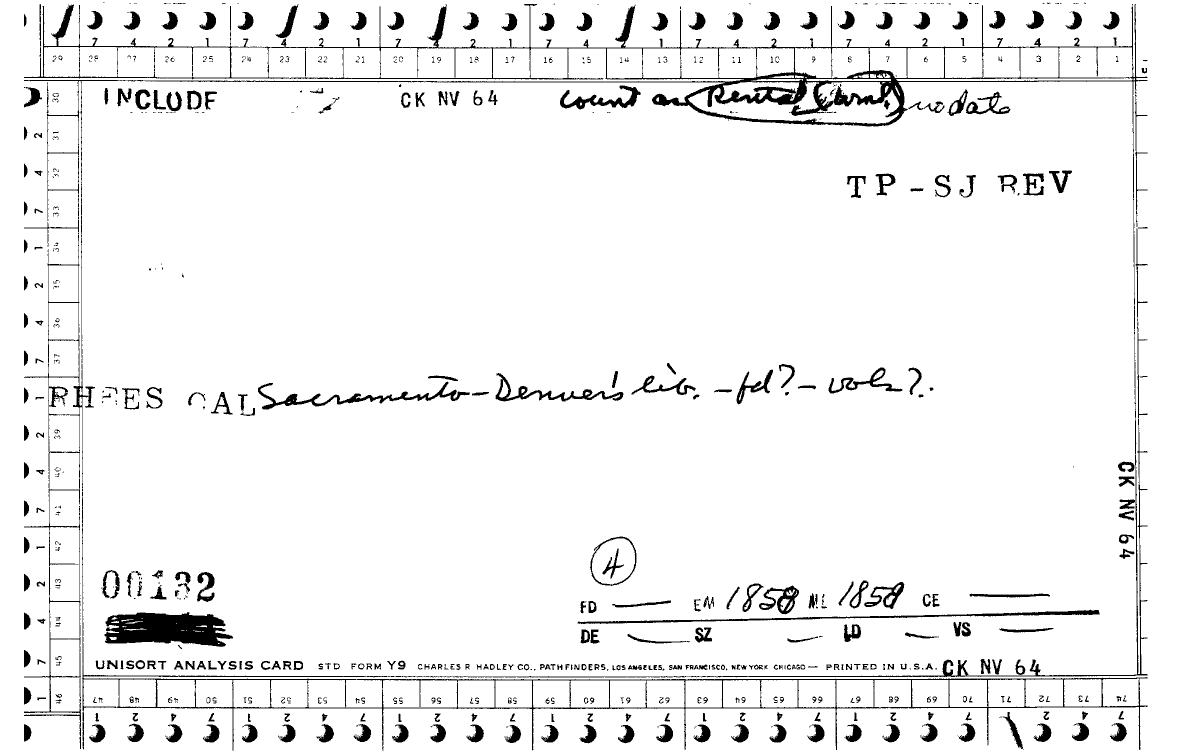 1 7 4 2 1 7 4 2 1 7 4 2 1 7 4 2 1 7 4 2 1 7 4 2 1 7 4 2 1
29 28 27 26 25 24 23 22 21 20 19 18 17 16 15 14 13 12 11 10 9 8 7 6 5 4 3 2 1
INCLUDE CK NV 64 count as Rental (Coml.) no date
TP-SJ REV
RHEES CAL Sacramento-Denver's lib. -fd?-vols?.
CK NV 64
4
00132
FD — EM 1858 ML 1858 CE —
DE — SZ — LD — VS —
UNISORT ANALYSIS CARD STD FORM Y9 CHARLES R HADLEY CO., PATHFINDERS, LOS ANGELES, SAN FRANCISCO, NEW YORK CHICAGO — PRINTED IN U.S.A. CK NV 64
47 48 49 50 51 52 53 54 55 56 57 58 59 60 61 62 63 64 65 66 67 68 69 70 71 72 73 74